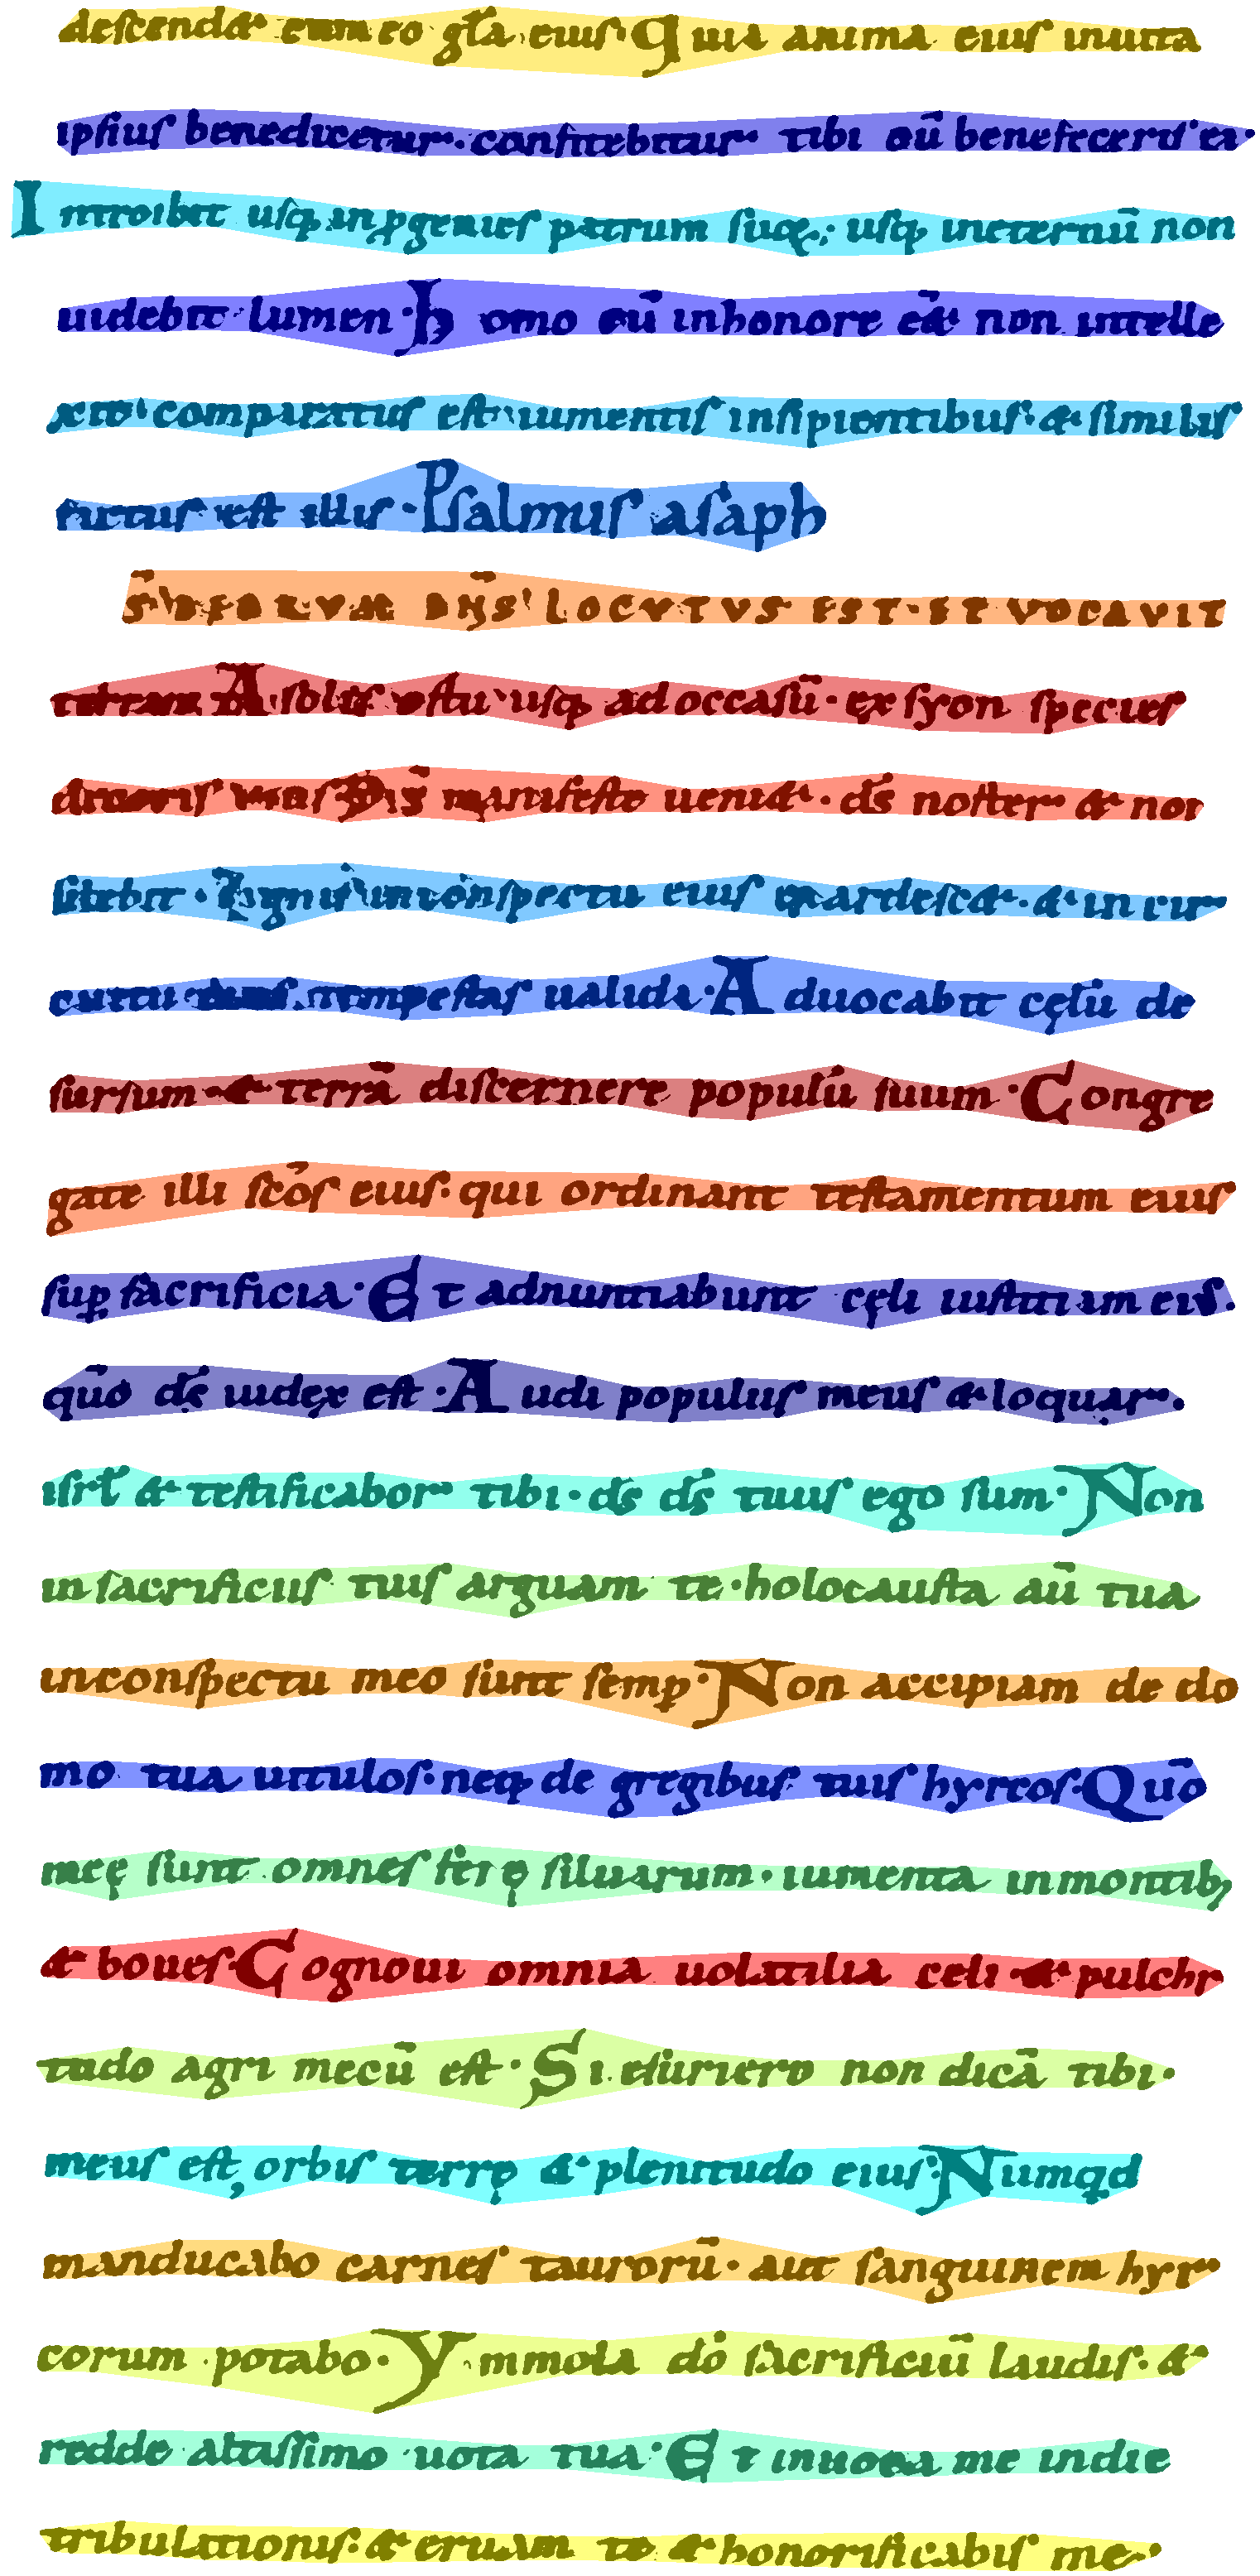 descendet cum eo gl̄a eius· Quia anima eius inuita
ipsius benedicetur· confitebitur tibi cū benefeceris ei·
Introibit usq; in ꝓgenies patrum suoꝝ; usq; inęternū non
uidebit lumen· Homo cū inhonore eēt non intelle
xit· comparatus est iumentis insipientibus· et similis
factus est illis· Psalmus asaph
DS̄ DEORVM DN̄S LOCVTVS EST· ET VOCAVIT
terram A solis ortu usq; ad occasū· ex syon species
decoris eius D̄s manifeste ueniet· ds̄ noster et non
silebit· Ignis inconspectu eius exardescet· et in cir
cuitu eius tempestas ualida· Aduocabit cęlū de
sursum et terrā discernere populū suum· Congre
gate illi scōs eius· qui ordinant testamentum eius
suꝑ sacrificia· Et adnuntiabunt cęli iustitiam eius·
qūo ds̄ iudex est· Audi populus meus et loquar·
isrl̄ et testificabor tibi· ds̄ ds̄ tuus ego sum· Non
insacrificiis tuis arguam te· holocausta aū tua
inconspectu meo sunt semꝑ· Non accipiam de do
mo tua uitulos· neq; de gregibus tuis hyrcos· Qūo
meę sunt omnes ferę siluarum· iumenta inmontib;
et boues· Cognoui omnia uolatilia celi et pulchri
tudo agri mecū est· Si esuriero non dicā tibi·
meus est orbis terrę et plenitudo eius· Numqd
manducabo carnes taurorū· aut sanguinem hyr
corum potabo· Ymmola dō sacrificiū laudis· et
redde altissimo uota tua· Et inuoca me indie
tribulationis· et eruam te et honorificabis me·